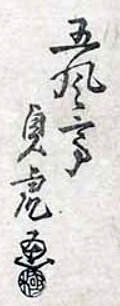 五風亭
貞虎画